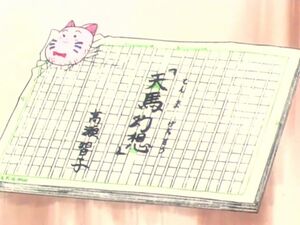 『天馬幻想』
てんまげんそう
高瀬習子